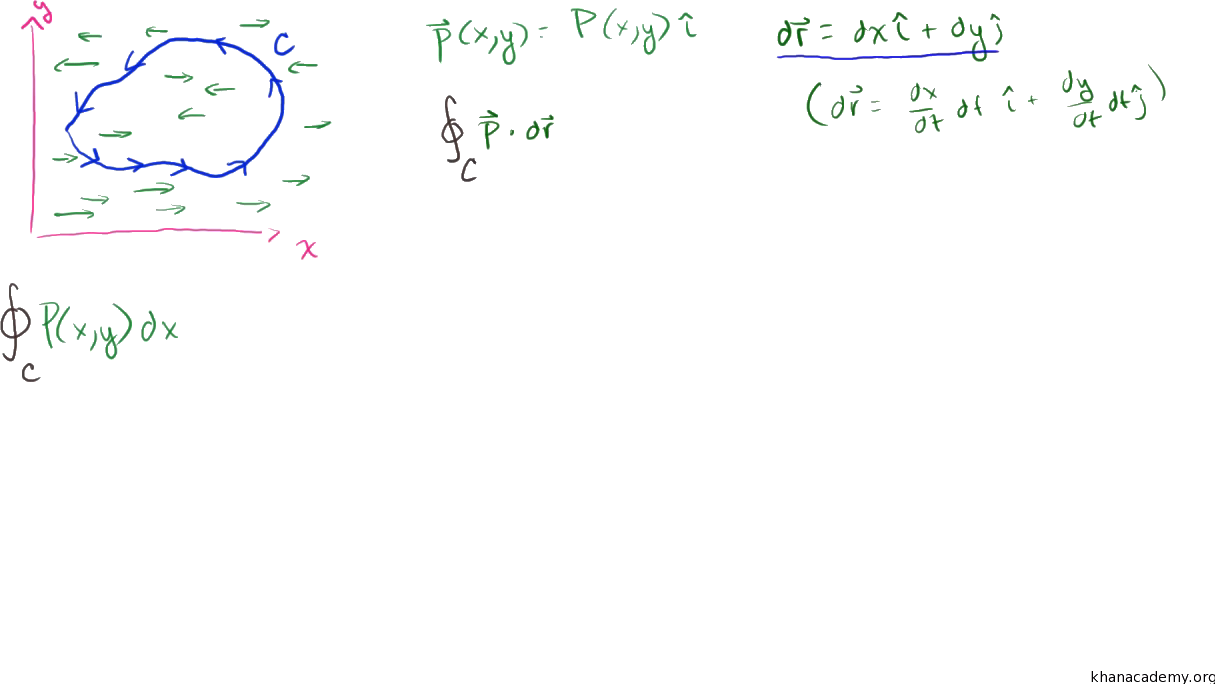 y
C
x
P⃗(x,y) = P(x,y) î
dr⃗ = dx î + dy ĵ
(dr⃗ = dx/dt dt î + dy/dt dt ĵ)
∮_C P⃗ · dr⃗
∮_C P(x,y) dx
khanacademy.org